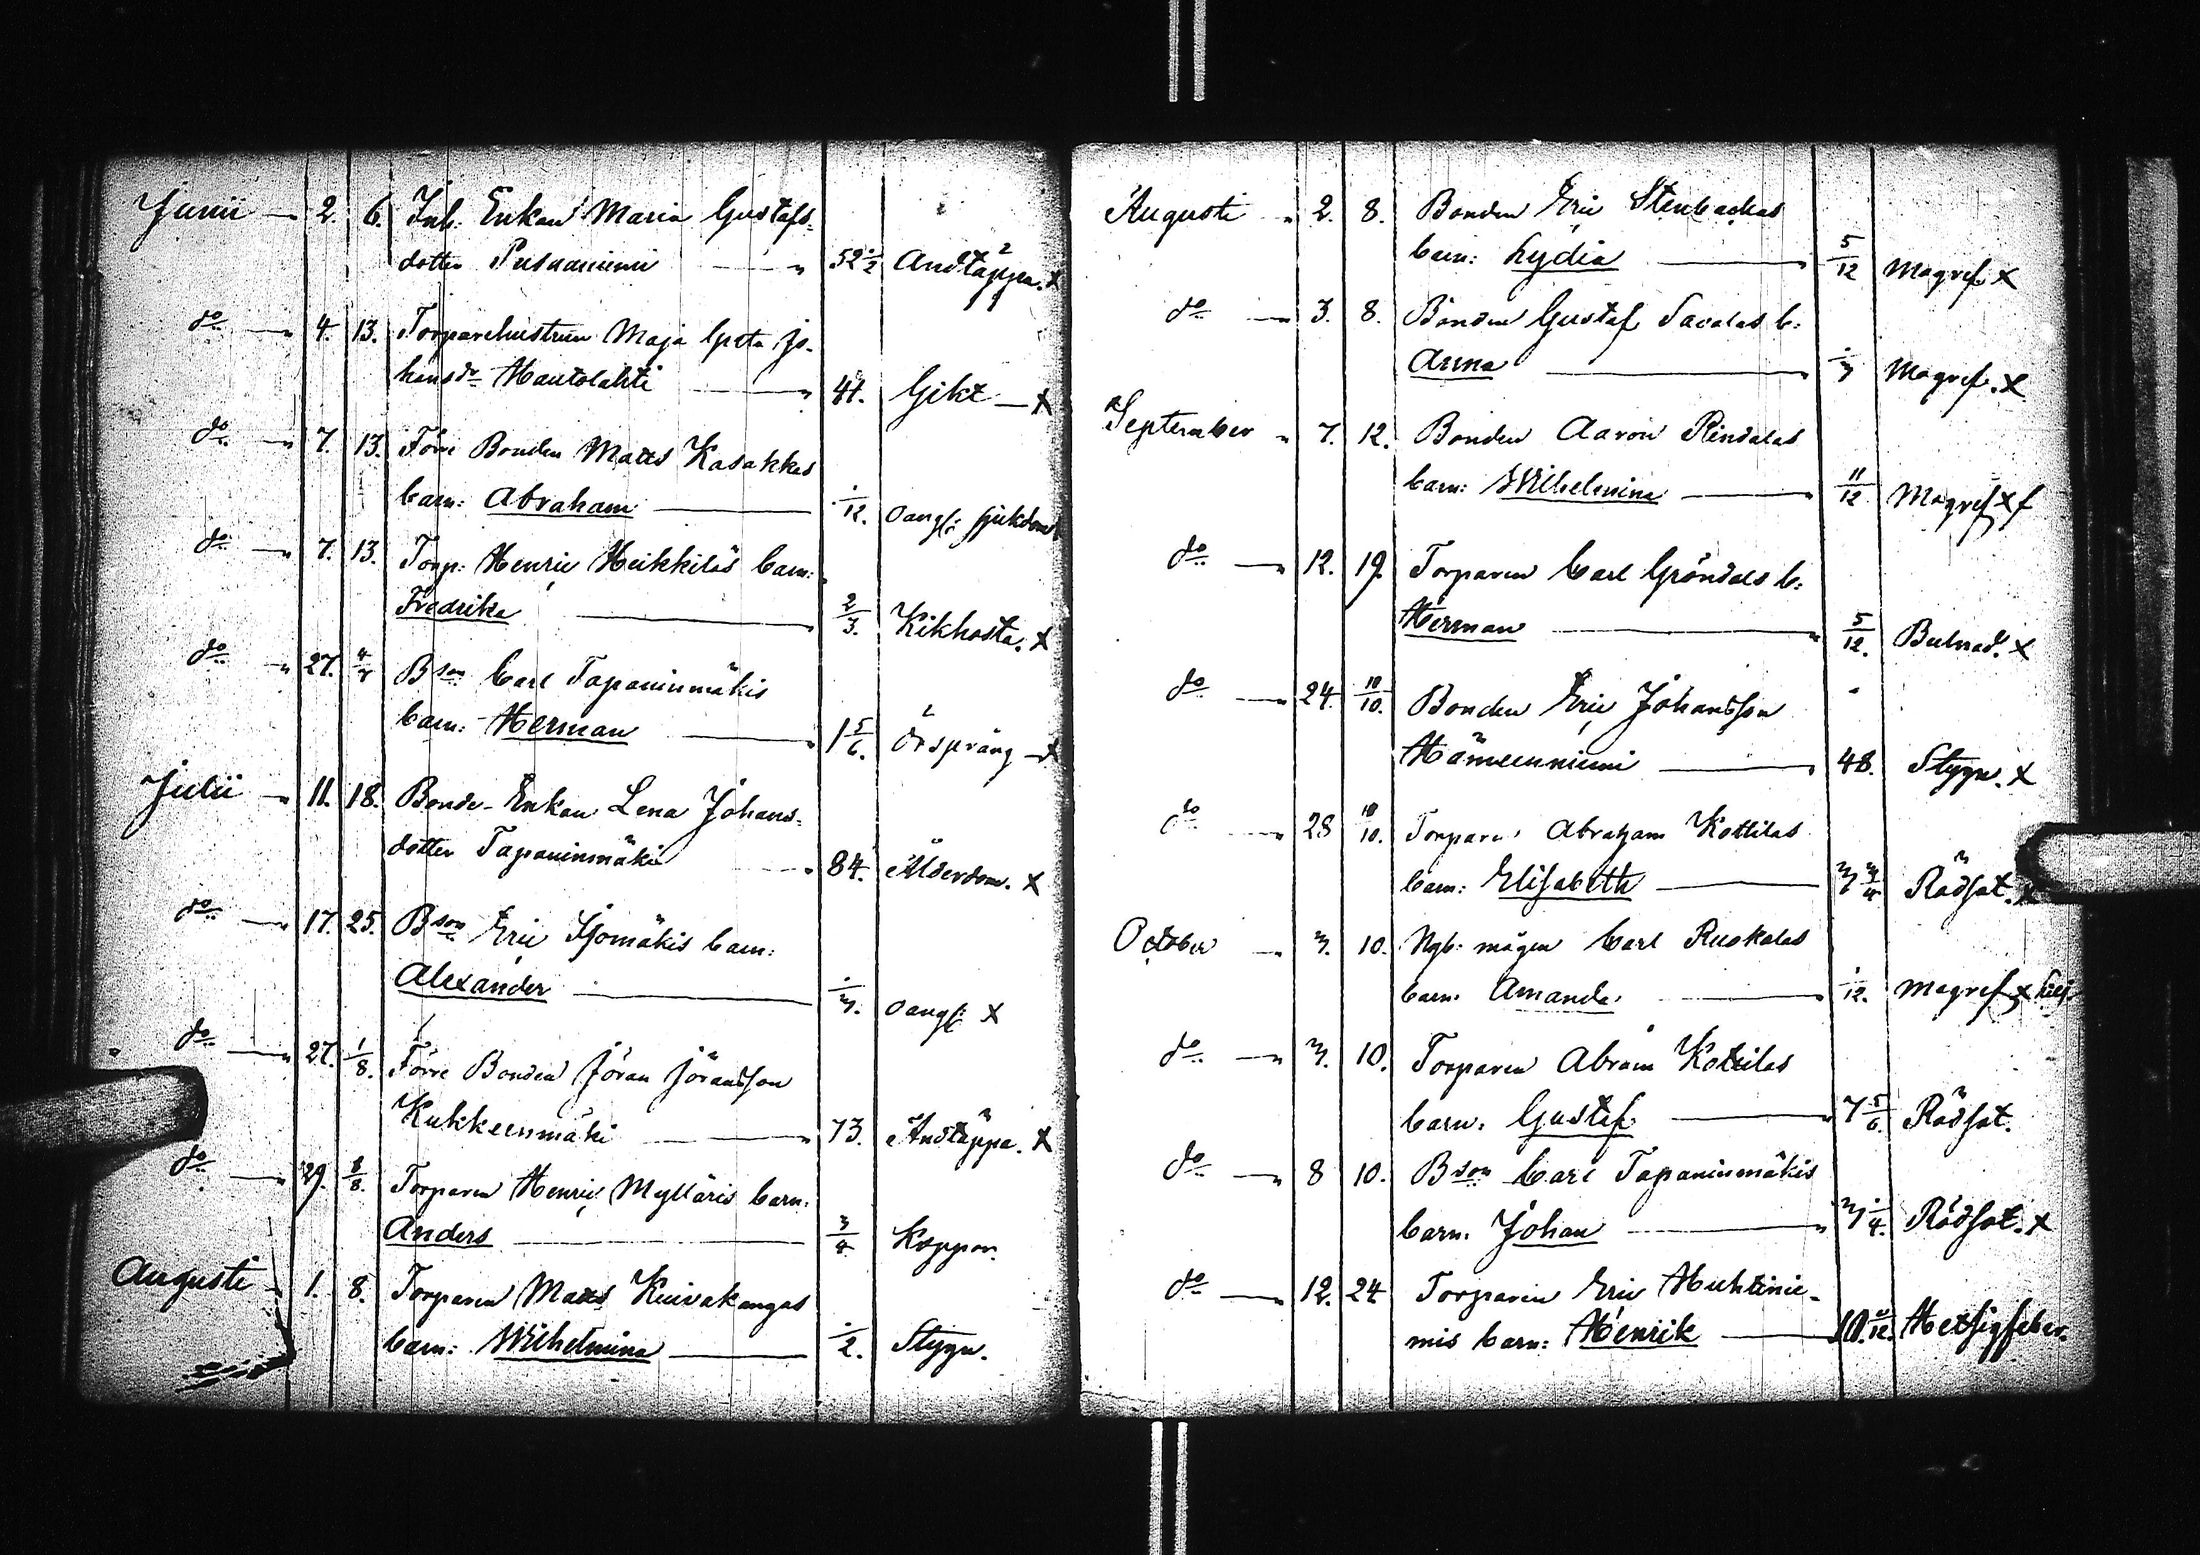 Junii — 2. 6. Inh. Enkan Maria Gustafs-
dotter Pusaaniemi — 52 1/2 Andtäppa. x
do — 4. 13. Torparehustrun Maja Greta Jo-
hansdr Hautolahti — 41. Gikt — x
do — 7. 13. Förre Bonden Matts Kasakkas
barn: Abraham — 1/12. Oangf: sjukdom
do — 7. 13. Torp: Henric Heikkiläs barn:
Fredrika — 2/3. Kikhosta. x
do — 27. 4/7 Bson Carl Tapaninmäkis
barn: Herman — 1 5/6. Össpräng — x
Julii — 11. 18. Bonde-Enkan Lena Johans-
dotter Tapaninmäki — 84. Ålderdom. x
do — 17. 25. Bson Eric Isomäkis barn:
Alexander — 1/3. Oangf: x
do — 27. 1/8. Förre Bonden Jöran Jöransson
Kukkeenmäki — 73. Andtäppa. x
do — 29. 8/8. Torparen Henric Mylläris barn:
Anders — 3/4 Koppor.
Augusti — 1. 8. Torparen Matts Kuivakangas
barn: Wilhelmina — 1/2. Stygn.
Augusti — 2. 8. Bonden Eric Stenbackas
barn: Lydia — 5/12 Magref. x
do — 3. 8. Bonden Gustaf Savolas b:
Anna — 1/3 Magref. x
September — 7. 12. Bonden Aaron Rindalas
barn: Wilhelmina — 11/12 Magref x f
do — 12. 19. Torparen Carl Gröndals b:
Herman — 5/12. Bulnad. x
do — 24. 10/10. Bonden Eric Johansson
Hämeenniemi — 48. Stygn. x
do — 28 10/10. Torparen Abraham Kottilas
barn: Elisabeth — 3 3/4 Rödsot. x
October — 3. 10. Ngb: mågen Carl Ruokolas
barn: Amanda — 1/12. Magref x
do — 3. 10. Torparen Abram Kottilas
barn. Gustaf — 7 5/6. Rödsot.
do — 8 10. Bson Carl Tapaninmäkis
barn. Johan — 3 1/4. Rödsot. x
do — 12. 24 Torparen Eric Huhtinie-
mis barn: Henrik — 10. Hetsigfeber.